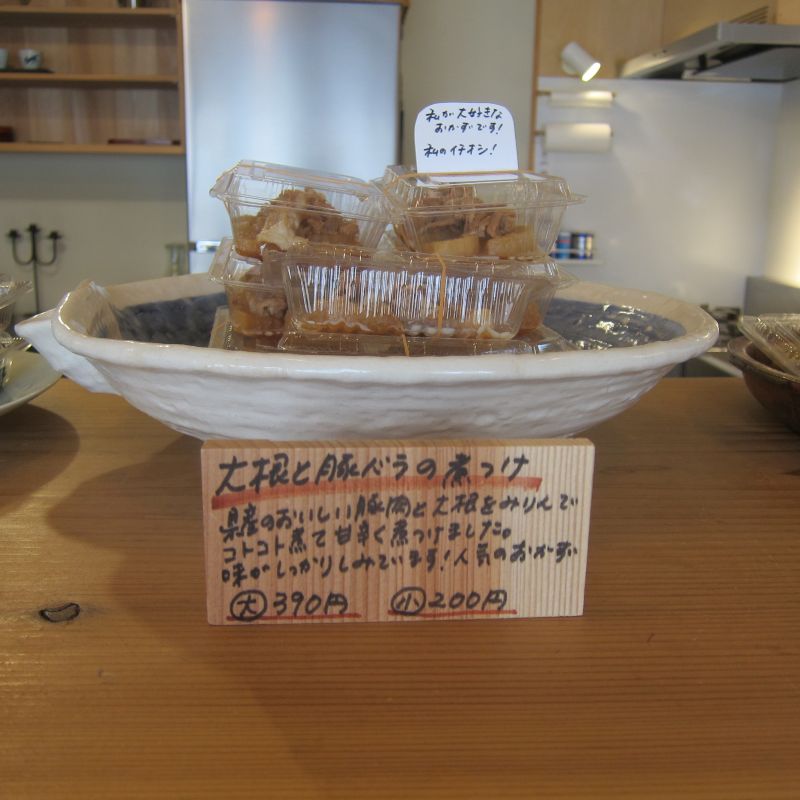 私が大好きな
おかずです!
私のイチオシ!
大根と豚バラの煮つけ
県産のおいしい豚肉と大根をみりんで
コトコト煮て甘辛く煮つけました。
味がしっかりしみています!人気のおかずい
大390円 小200円